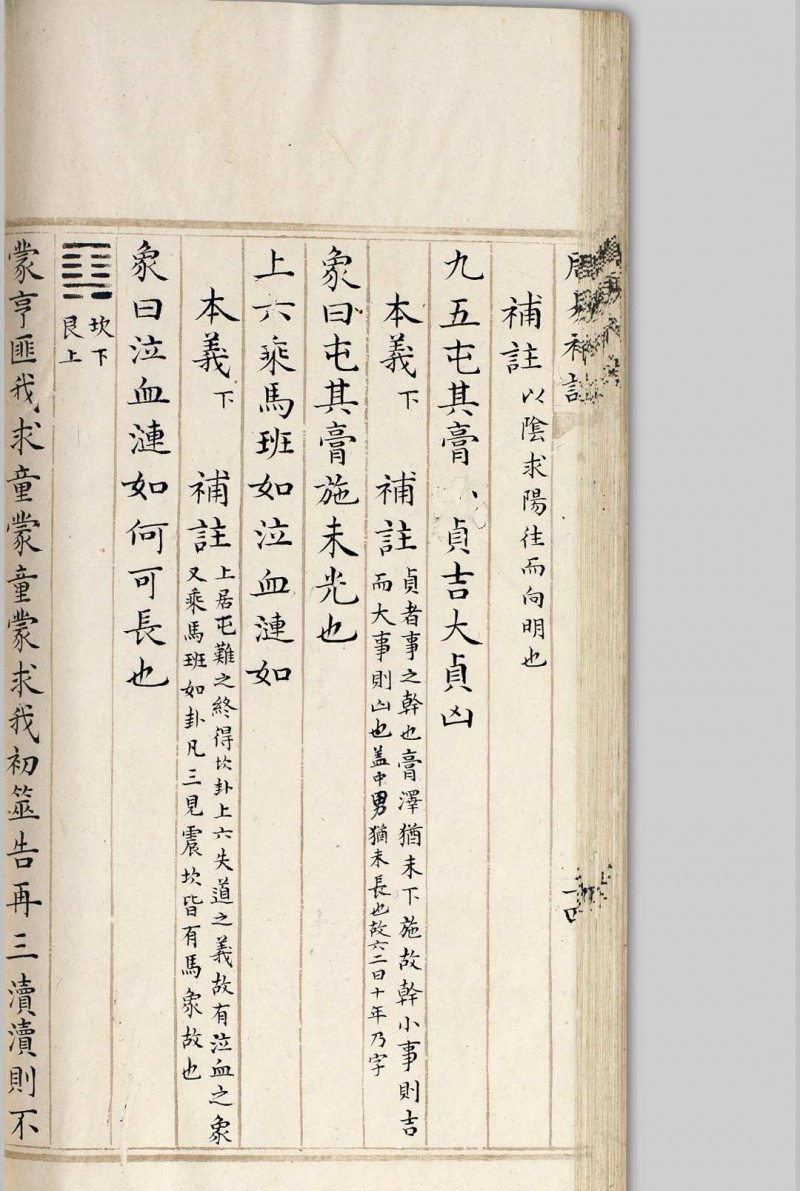 周易補註
補註 以陰求陽往而向明也
九五屯其膏小貞吉大貞凶
本義下 補註 貞者事之幹也膏澤猶未下施故幹小事則吉
而大事則凶也盖中男猶未長也故六二曰十年乃字
象曰屯其膏施未光也
上六乘馬班如泣血漣如
本義下 補註 上居屯難之終得坎卦上六失道之義故有泣血之象
又乘馬班如卦凡三見震坎皆有馬象故也
象曰泣血漣如何可長也
䷃ 坎下
艮上
蒙亨匪我求童蒙童蒙求我初筮告再三瀆瀆則不